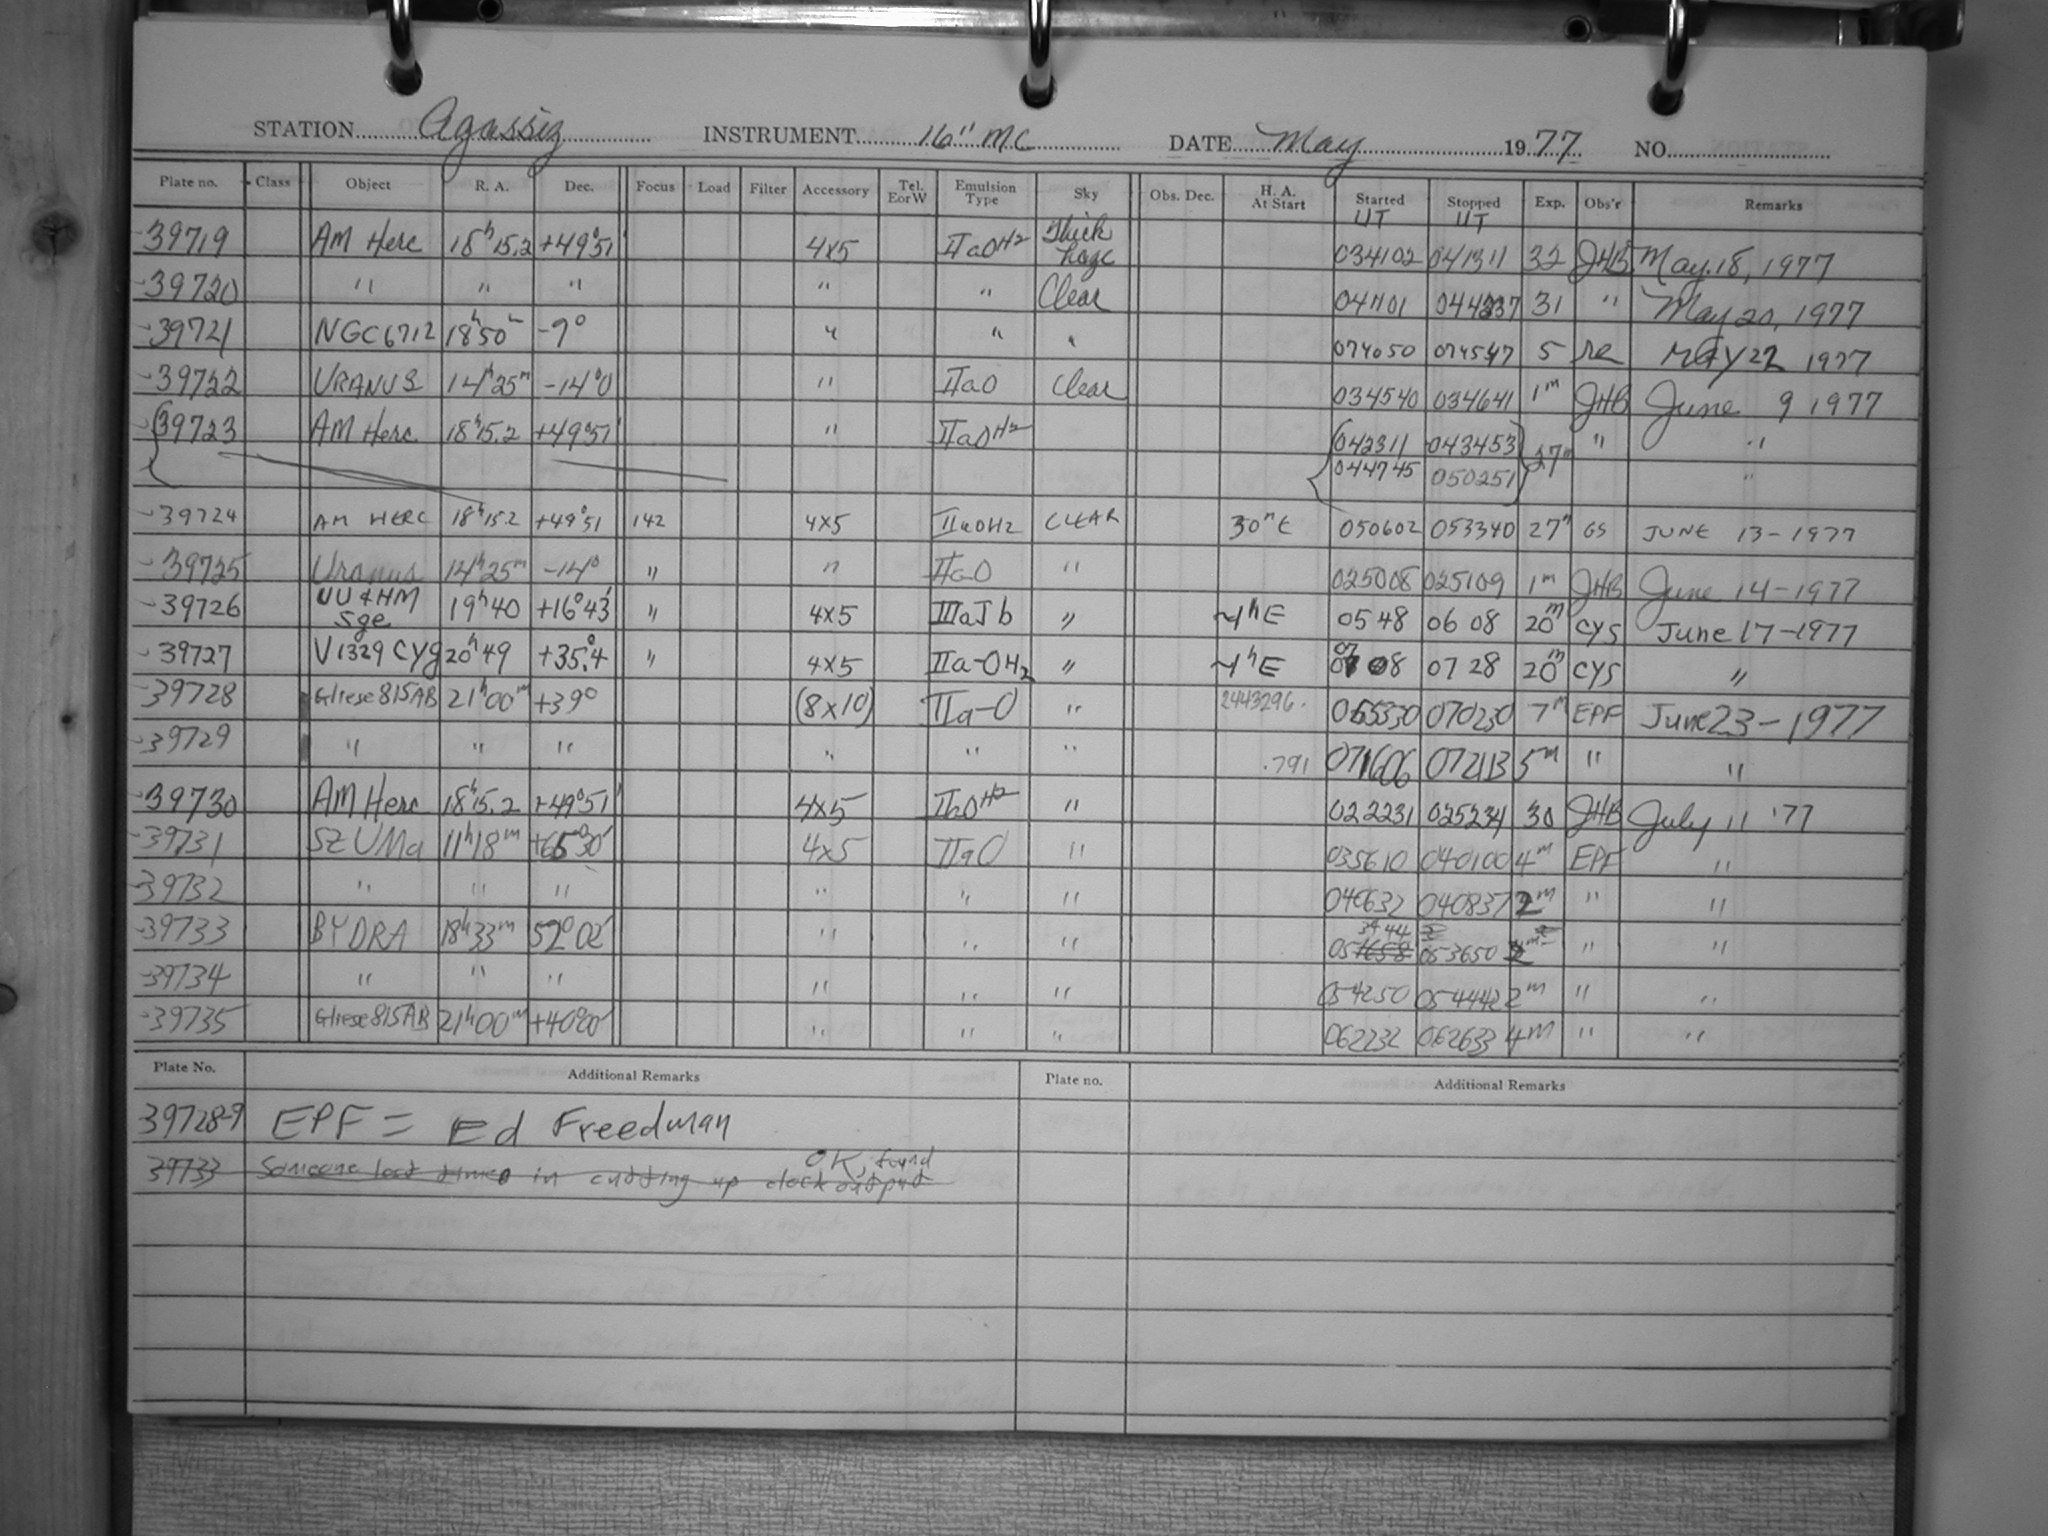 STATION Agassiz INSTRUMENT 16" MC DATE May 1977 NO.
Plate no. Class Object R. A. Dec. Focus Load Filter Accessory Tel. EorW Emulsion Type Sky Obs. Dec. H. A. At Start Started UT Stopped UT Exp. Obs'r Remarks
39719 AM Herc 18h15.2 +49°51' 4x5 IIaOH2 Thick haze 034102 041311 32 JHB May 18, 1977
39720 " " " " " Clear 041101 044237 31 " May 20, 1977
39721 NGC6712 18h50m -9° " " " 074050 074547 5 re MAY 22 1977
39722 URANUS 14h25m -14°0 " IIaO Clear 034540 034641 1m JHB June 9 1977
39723 AM Herc 18h15.2 +49°51' " IIaOH2 042311 043453 27m " "
044745 050251 "
39724 AM HERC 18h15.2 +49°51 142 4x5 IIaOH2 CLEAR 30mE 050602 053340 27m GS JUNE 13-1977
39725 Uranus 14h25m -14° " " IIaO " 025008 025109 1m JHB June 14-1977
39726 UU & HM Sge 19h40 +16°43' " 4x5 IIIaJb " ~1hE 0548 0608 20m CYS June 17-1977
39727 V1329 Cyg 20h49 +35°.4 " 4x5 IIa-OH2 " ~1hE 0708 0728 20m CYS "
39728 Gliese 815AB 21h00m +39° (8x10) IIa-O " 2443296. 065530 070230 7m EPF June 23-1977
39729 " " " " " " .791 071606 072113 5m " "
39730 AM Herc 18h15.2 +49°51' 4x5 IIaOH2 " 022231 025234 30 JHB July 11 '77
39731 SZ UMa 11h18m +65°30' 4x5 IIaO " 035610 040100 4m EPF "
39732 " " " " " " 040632 040837 2m " "
39733 BY DRA 18h33m 52°02' " " " 051658 3444 053650 2m " "
39734 " " " " " " 054250 054442 2m " "
39735 Gliese 815AB 21h00m +40°00' " " " 062232 062633 4m " "
Plate No. Additional Remarks Plate no. Additional Remarks
39728-9 EPF = Ed Freedman
39733 Someone lost times in cutting up clock output OK, found